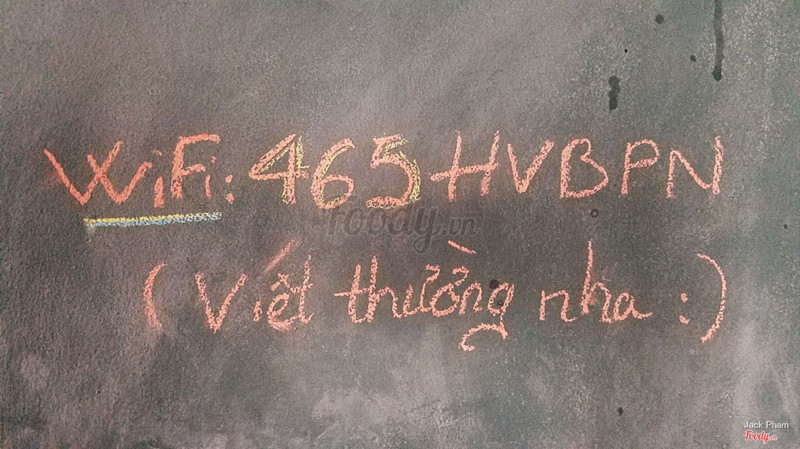 WiFi: 465HVBPN
foody.vn
(Viết thường nha :)
Jack Pham
Foody.vn